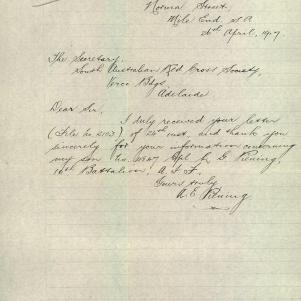 Normal Street,
Mile End S.A
April, 1917
The Secretary.
South Australian Red Cross Society,
Verco Bdgs,
Adelaide
Dear Sir,
I duly received your letter
(File No 2103) of 24th inst, and thank you
sincerely for your information concerning
my son No. Cpl L. G
16th Battalion, A. I. F.
Yours truly
A. E.